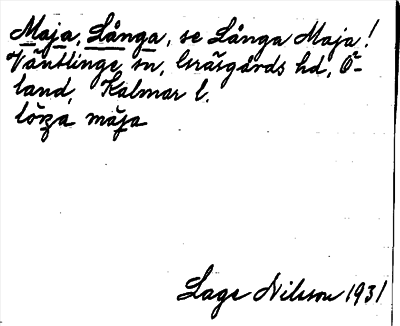 Maja, Långa, se Långa Maja!
Väntlinge sn, Gräsgårds hd, Ö-
land, Kalmar l.
låŋa măja
Lage Nilsson 1931